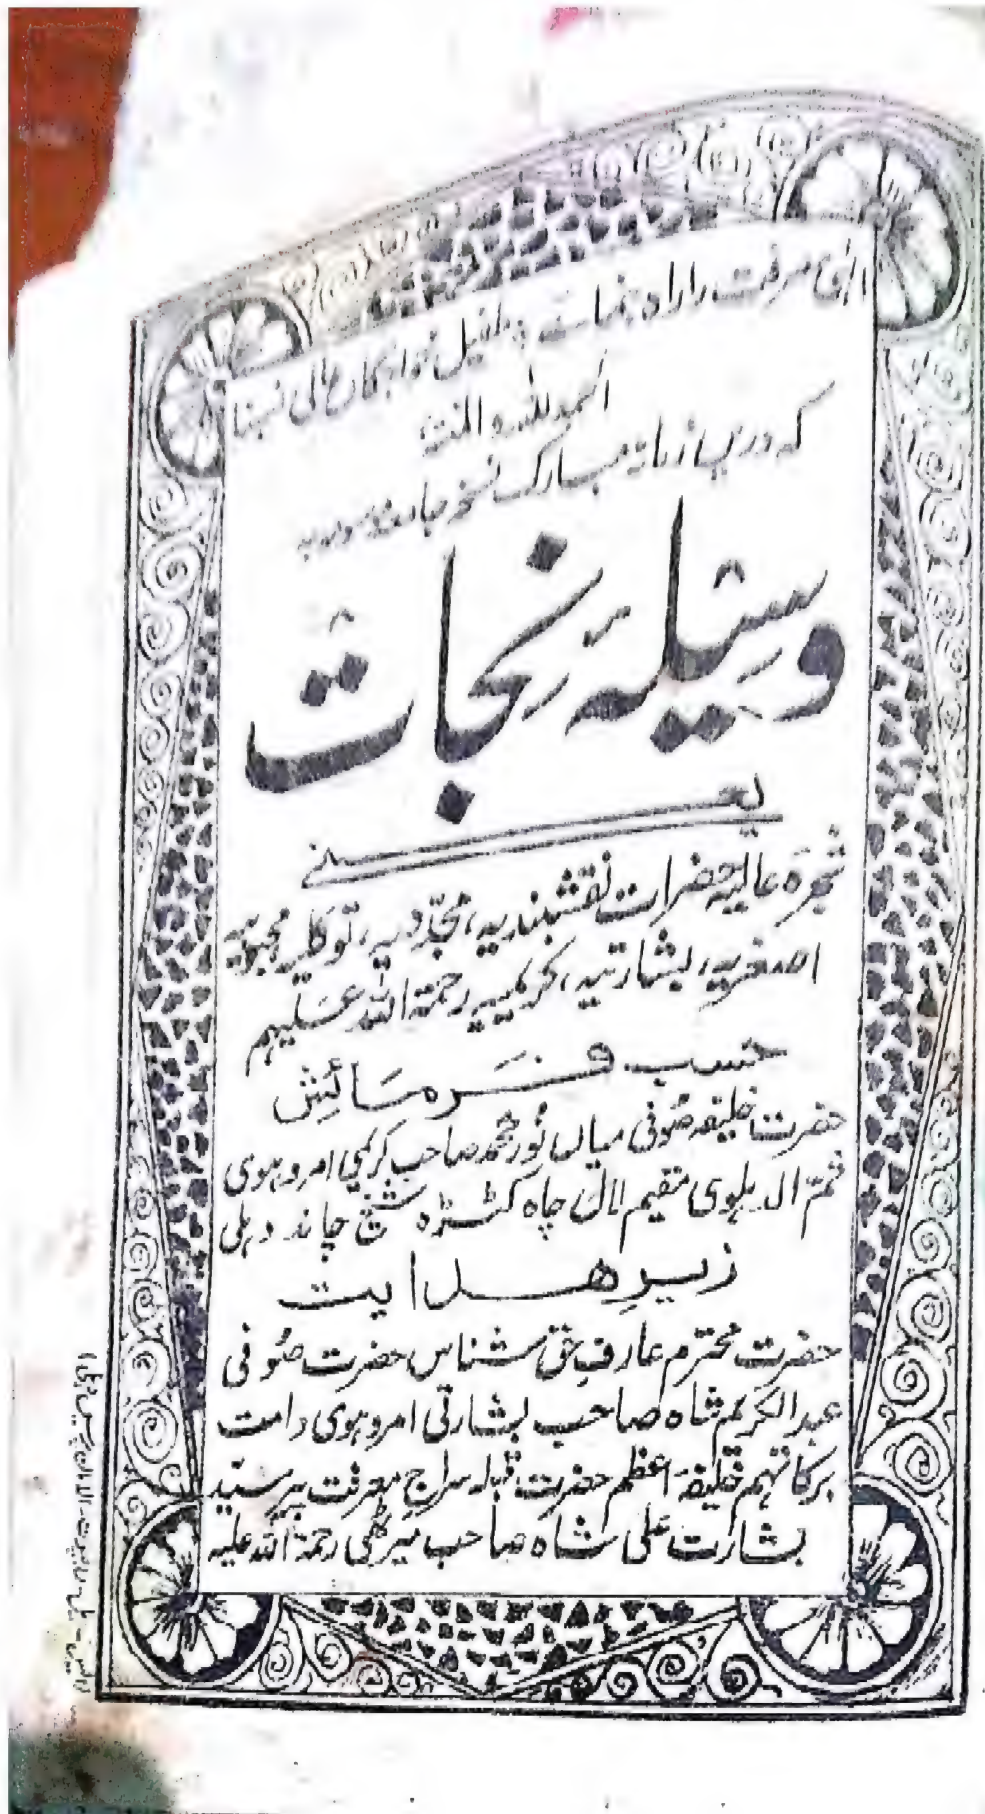 الٰہی معرفت را راہ بنما بہ طفیل خواجگان عالی نسبنا
الحمد للہ و المنتہ
کہ دریں زمانہ مبارک نسخہ
وسِیلۂ نجات
یعنے
شجرہ عالیہ حضرات نقشبندیہ، مجدّدیہ، توکلیہ محبوبیہ
اصغریہ، بشارتیہ، کریمیہ رحمۃ اللہ عَلیہم
حَسب فَرمَائِش
حضرت خلیفہ صُوفی میاں نُور محمد صاحب کریمی امروہوی
ثمّ الدہلوی مقیم لال چاہ کٹڑہ شیخ چاند دہلی
زیرِ ھدایت
حضرت محترم عارفِ حق شناس حضرت صُوفی
عبدالکریم شاہ صاحب بشارتی امروہوی دامت
برکاتہم خلیفہ اعظم حضرت قبلہ سراجِ معرفت پیر سیّد
بشارت علی شاہ صاحب میرٹھی رحمۃ اللہ علیہ